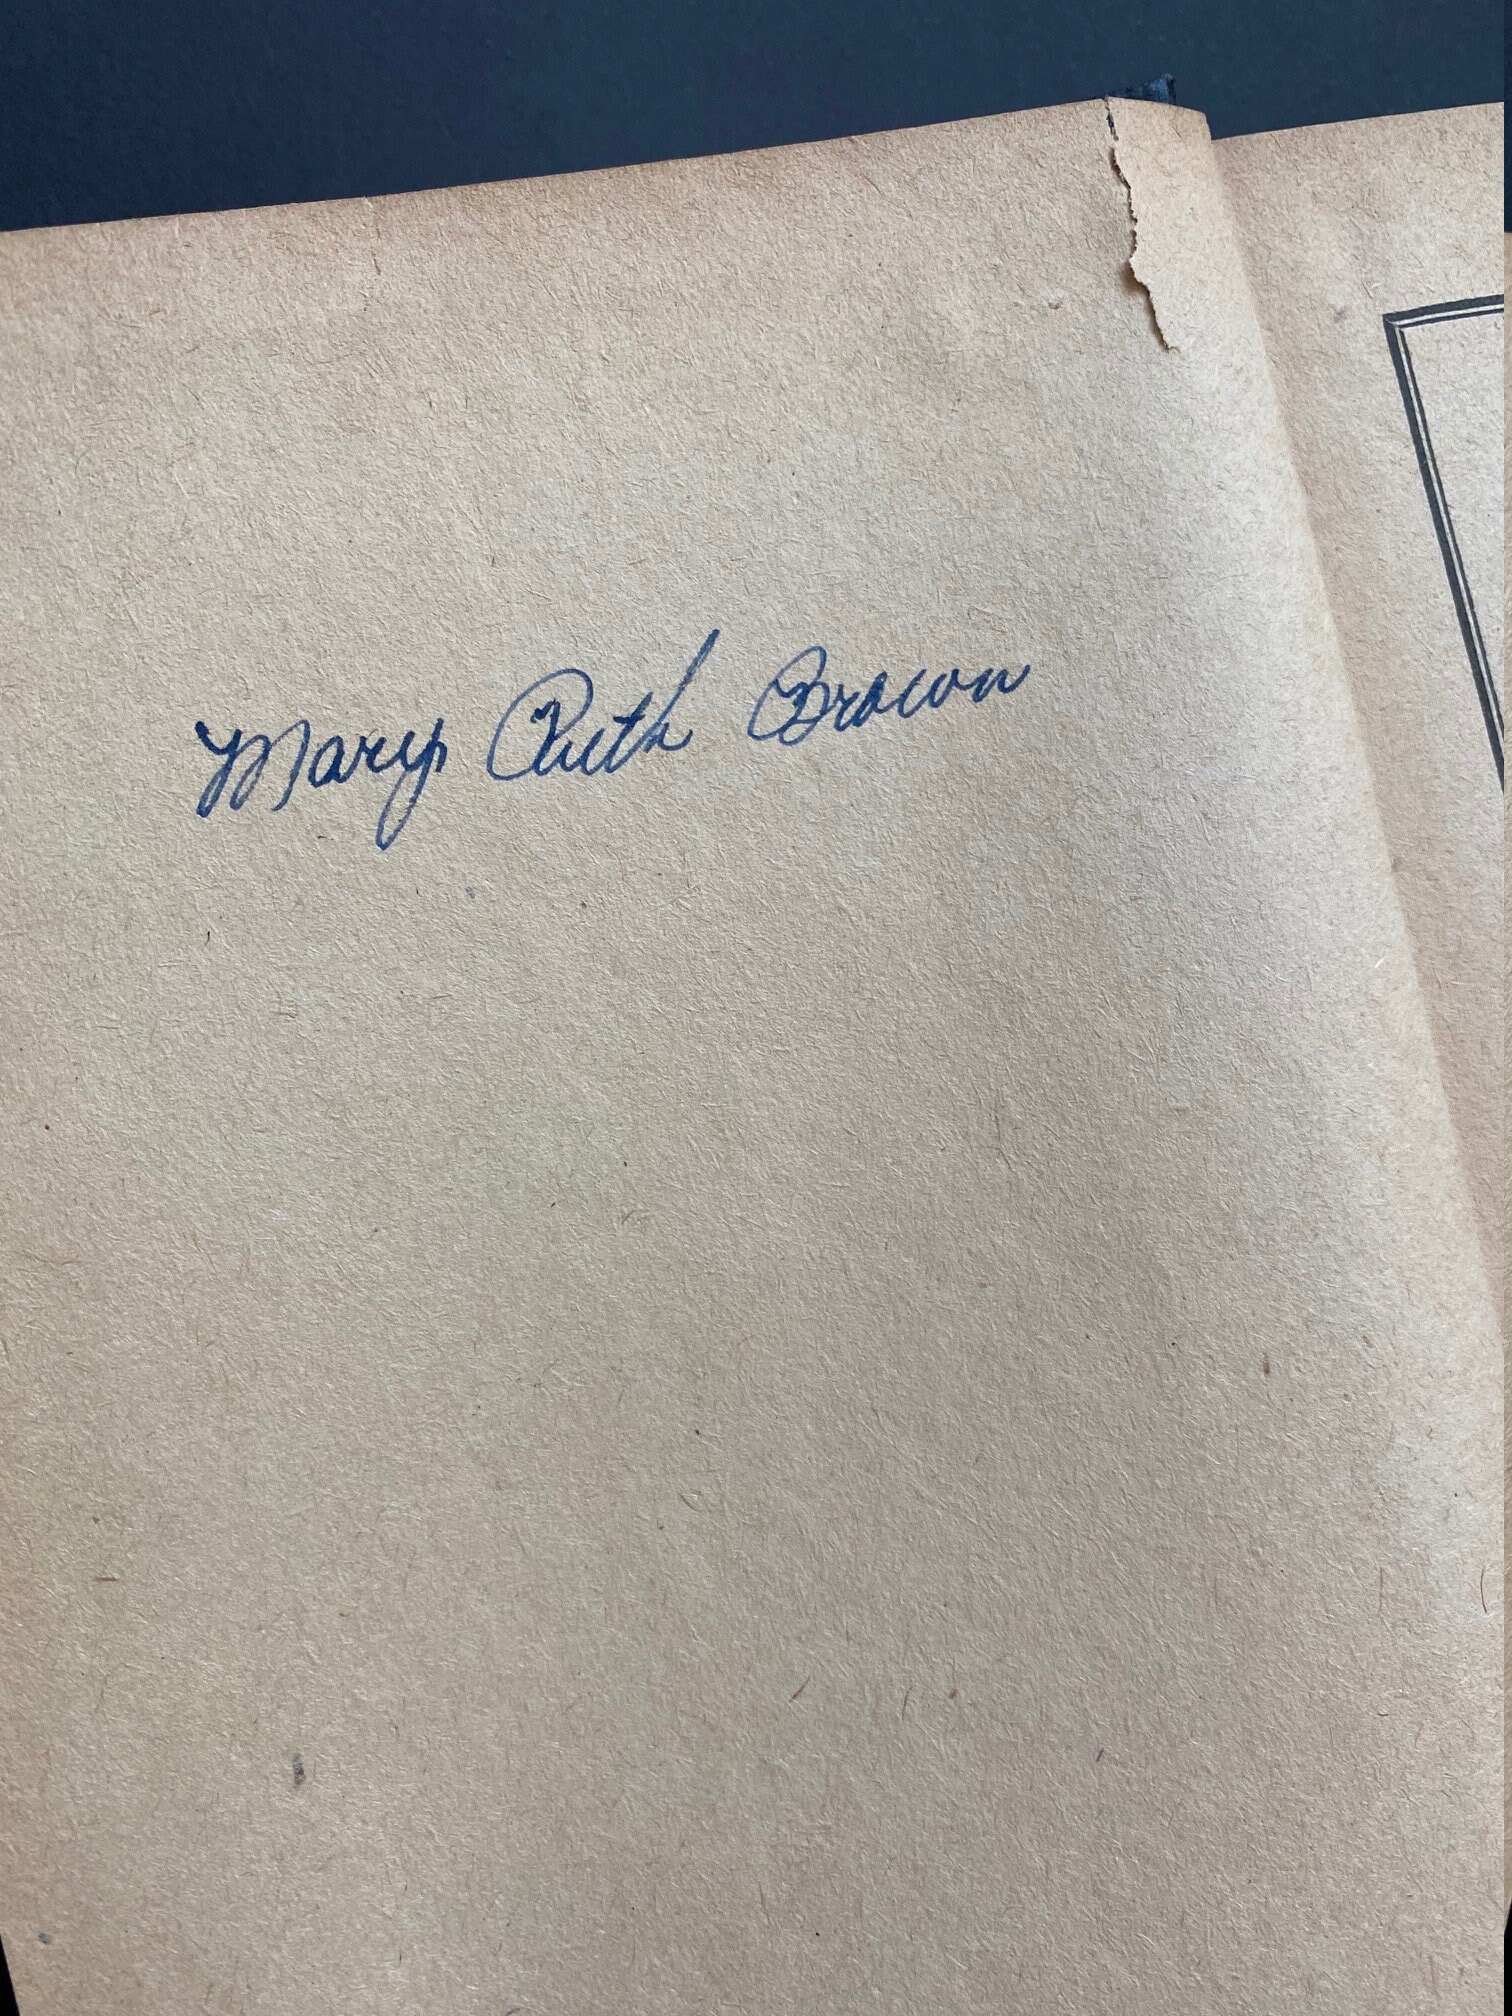 Mary Ruth Brown